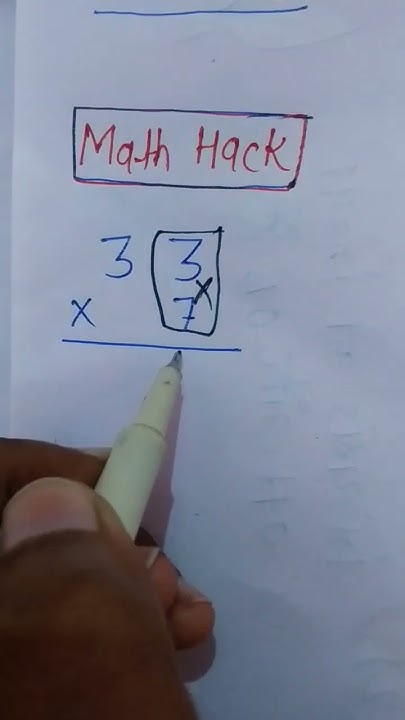 Math Hack
3 3
x 7 x